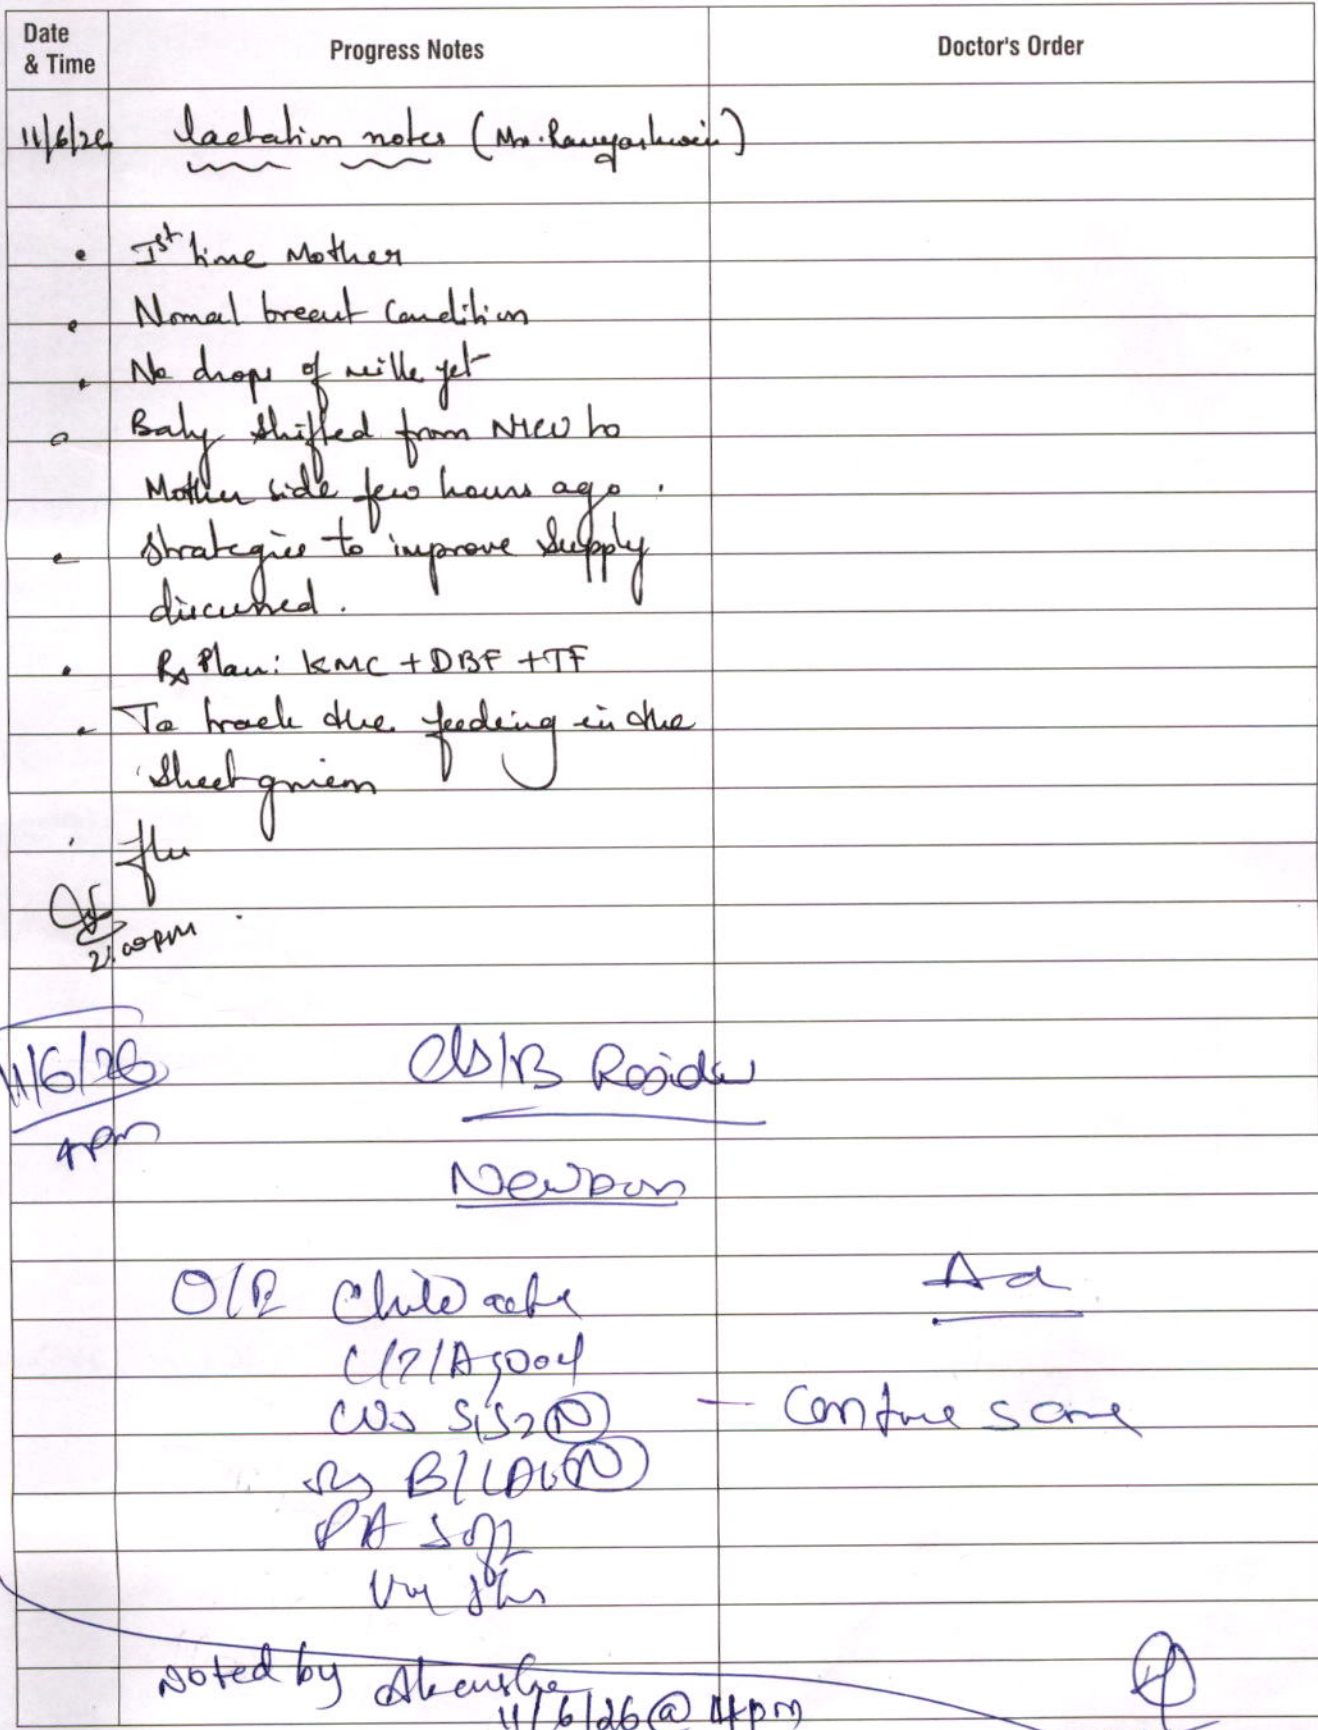 Date & Time Progress Notes Doctor's Order
11/6/26 lactation notes
• Ist time Mother
• Normal breast Condition
• No drops of milk yet
• Baby shifted from NICU to
Mother side few hours ago.
• Strategies to improve supply
discussed.
• Rx Plan: KMC + DBF + TF
• To track the feeding in the
sheet given
2:00pm
11/6/26 C/S/B Resident
4pm
Newborn
O/E Child active Ad
C/T/A good
CVS S1S2 (N) – Continue same
RS B/L (N)
PA soft
Noted by
11/6/26 @ 4pm